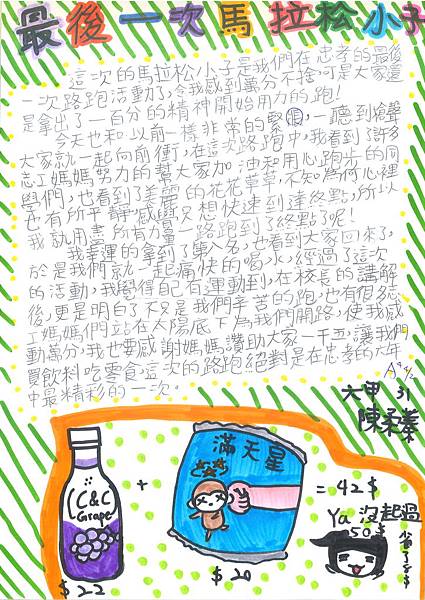 最後一次馬拉松小子
這次的馬拉松小子是我們在忠孝的最後
一次路跑活動了,令我感到萬分不捨,可是大家還
是拿出了一百分的精神開始用力的跑!
今天也和以前一樣非常的緊張,一聽到槍聲
大家就一起向前衝,在這次路跑中,我看到了許多
志工媽媽努力的幫大家加油和用心跑步的同
學們,也看到了美麗的花花草草,不知為何心裡
也有所平靜,感覺只想快速到達終點,所以
我就用盡所有力量一路跑到了終點呢!
我幸運的拿到了第八名,也看到大家回來了,
於是我們就一起痛快的喝水,經過了這次
的活動,我覺得自己有運動到,在校長的講解
後,更是明白了不只是我們辛苦的跑,也有很多志
工媽媽們站在太陽底下為我們開路,使我感
動萬分,我也要感謝媽媽讚助大家一千,讓我們
買飲料吃零食,這次的路跑絕對是在忠孝的六年
中最精彩的一次。
六甲 31
陳柔蓁
C&C
Grape
$22
+
滿天星
$20
= 42$
Ya 沒超過
50$
省了8$